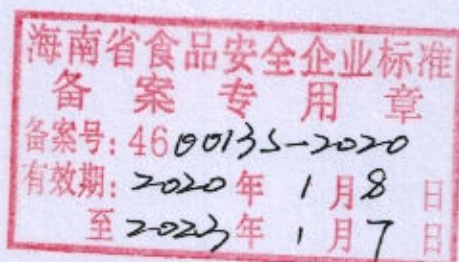 海南省食品安全企业标准
备案专用章
备案号:460013S-2020
有效期:2020年1月8日
至2023年1月7日